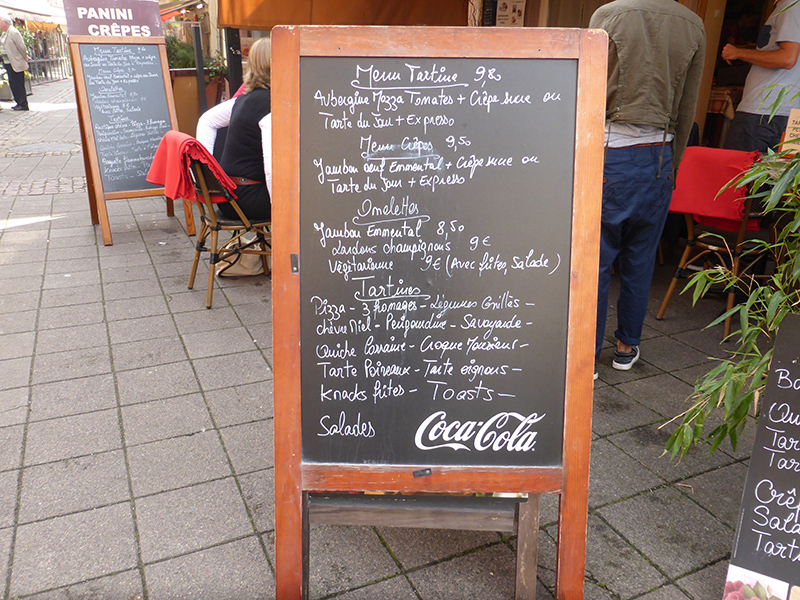 PANINI
CRÊPES
Menu Tartine
Menu Tartine 9,80
Aubergine Mozza Tomates + Crêpe sucre ou
Tarte du Jour + Expresso
Menu Crêpes 9,50
Jambon oeuf Emmental + Crêpe sucre ou
Tarte du Jour + Expresso
Omelettes
Jambon Emmental 8,50
Lardons champignons 9€
Végétarienne 9€ (Avec frites, Salade)
Tartines
Pizza - 3 fromages - Légumes Grillés -
chèvre Miel - Périgourdine - Savoyarde -
Quiche Lorraine - Croque Monsieur -
Tarte Poireaux - Tarte oignons -
Knacks frites - Toasts -
Salades
Coca-Cola
Quich
Tart
Tart
Crêp
Sala
Tarti